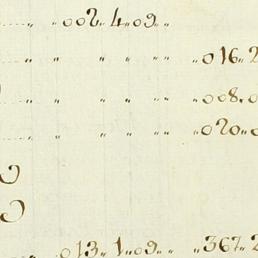 .. .. 002.. 4.. 09.. ..
.. .. .. .. .. .. .. 016.. 2
.. .. .. .. .. .. .. 008.. 0
.. .. .. .. .. .. 020.. 0
.. 013.. 1.. 09.. .. 367.. 2